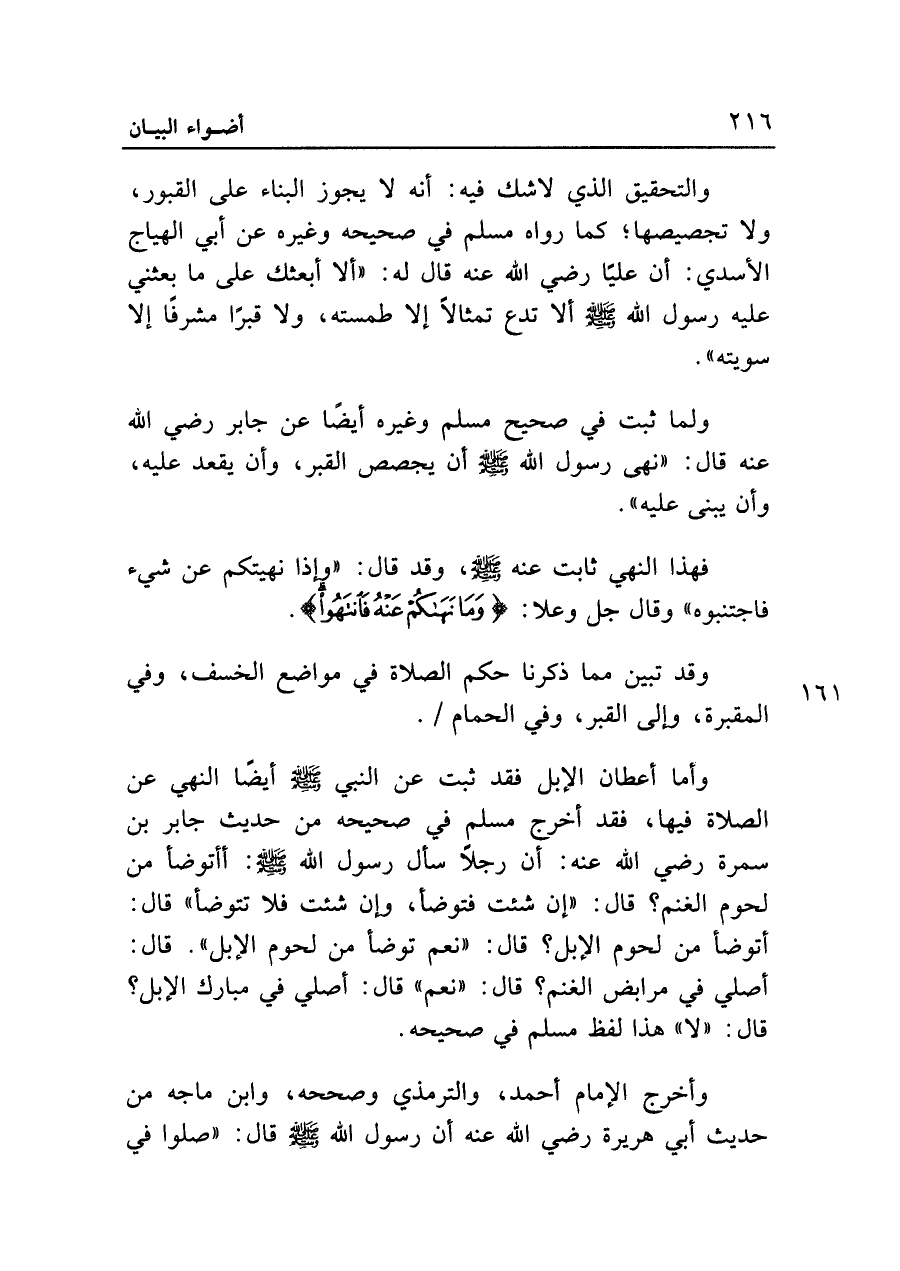 ٢١٦
أضـواء البيـان
والتحقيق الذي لاشك فيه: أنه لا يجوز البناء على القبور،
ولا تجصيصها؛ كما رواه مسلم في صحيحه وغيره عن أبي الهياج
الأسدي: أن عليًا رضي الله عنه قال له: «ألا أبعثك على ما بعثني
عليه رسول الله ﷺ ألا تدع تمثالاً إلا طمسته، ولا قبرًا مشرفًا إلا
سويته».
ولما ثبت في صحيح مسلم وغيره أيضًا عن جابر رضي الله
عنه قال: «نهى رسول الله ﷺ أن يجصص القبر، وأن يقعد عليه،
وأن يبنى عليه».
فهذا النهي ثابت عنه ﷺ، وقد قال: «وإذا نهيتكم عن شيء
فاجتنبوه» وقال جل وعلا: ﴿وَمَا نَهَىٰكُمْ عَنْهُ فَٱنتَهُوا۟ۚ﴾.
وقد تبين مما ذكرنا حكم الصلاة في مواضع الخسف، وفي
١٦١
المقبرة، وإلى القبر، وفي الحمام / .
وأما أعطان الإبل فقد ثبت عن النبي ﷺ أيضًا النهي عن
الصلاة فيها، فقد أخرج مسلم في صحيحه من حديث جابر بن
سمرة رضي الله عنه: أن رجلاً سأل رسول الله ﷺ: أأتوضأ من
لحوم الغنم؟ قال: «إن شئت فتوضأ، وإن شئت فلا تتوضأ» قال:
أتوضأ من لحوم الإبل؟ قال: «نعم توضأ من لحوم الإبل». قال:
أصلي في مرابض الغنم؟ قال: «نعم» قال: أصلي في مبارك الإبل؟
قال: «لا» هذا لفظ مسلم في صحيحه.
وأخرج الإمام أحمد، والترمذي وصححه، وابن ماجه من
حديث أبي هريرة رضي الله عنه أن رسول الله ﷺ قال: «صلوا في